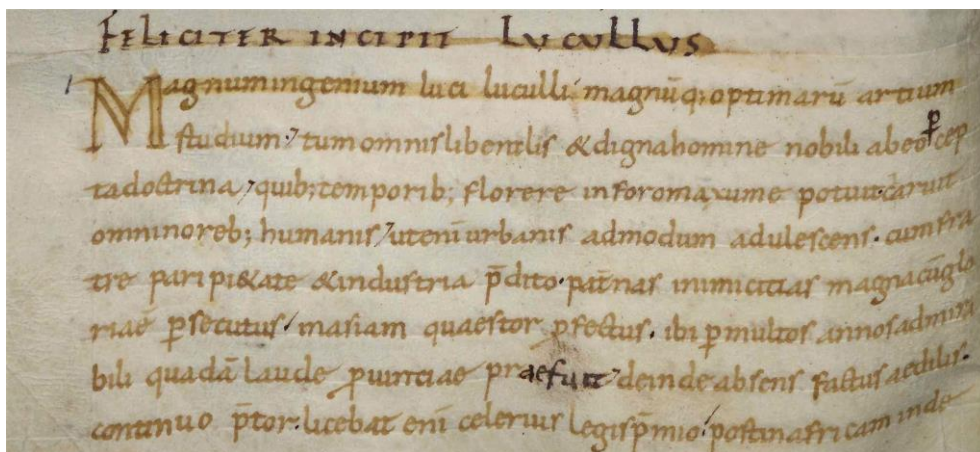 FELICITER INCIPIT LUCULLUS
Magnumingenium luci luculli magnūq; optimarū artium
studium; tumomnisliberalis &dignahomine nobili abeo p̄cep
tadoctrina, quib;temporib; florere inforomaxume potuit.caruit
omninoreb; humanis, utenīurbanis admodum adulescens. cumfra
tre paripi&ate &industria p̄dito. pat̄nas inimicitias magnacūglo
riae p̄secutus, inasiam quaestor p̄fectus. ibi p̄multos annosadmira
bili quadā laude p̄uintiae praefuit, deinde absens factusaedilis.
continuo p̄tor. licebat enī celerius legisp̄mio. postinafricam inde